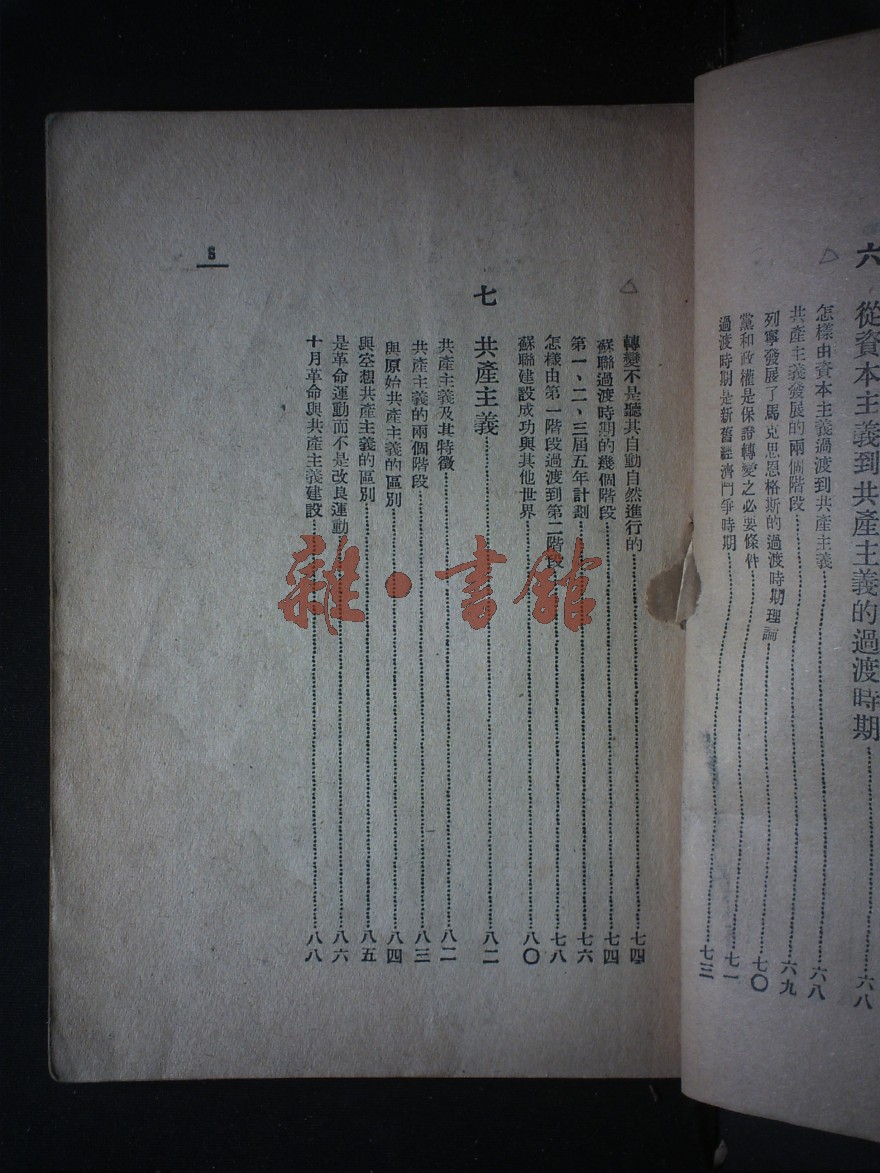 六 從資本主義到共產主義的過渡時期……六八
怎樣由資本主義過渡到共產主義……六八
共產主義發展的兩個階段……六九
列寧發展了馬克思恩格斯的過渡時期理論……七〇
黨和政權是保證轉變之必要條件……七一
過渡時期是新舊經濟鬥爭時期……七三
轉變不是聽其自動自然進行的……七四
蘇聯過渡時期的幾個階段……七四
第一、二、三屆五年計劃……七六
怎樣由第一階段過渡到第二階段……七八
蘇聯建設成功與其他世界……八〇
七 共產主義……八二
共產主義及其特徵……八二
共產主義的兩個階段……八三
與原始共產主義的區別……八四
與空想共產主義的區別……八五
是革命運動而不是改良運動……八六
十月革命與共產主義建設……八八
雜·書館